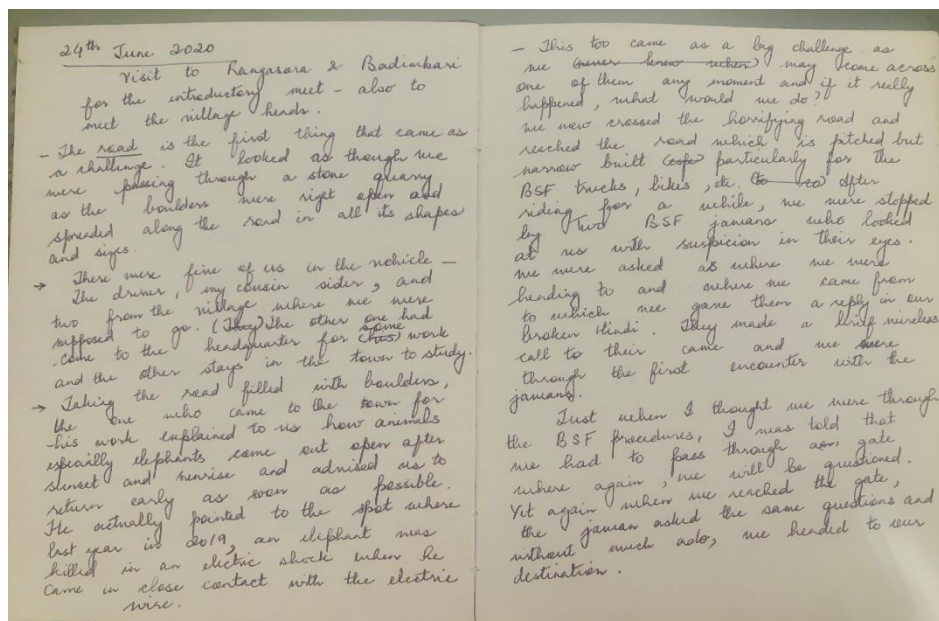 24th June 2020
Visit to Rangasora & Badimbari
for the introductory meet - also to
meet the village heads.
- The road is the first thing that came as
a challenge. It looked as though we
were passing through a stone quarry
as the boulders were right open and
spreaded along the road in all its shapes
and sizes.
→ There were five of us in the vehicle -
The driver, my cousin sister, and
two from the village where we were
supposed to go. (They) The other one had
come to the headquarter for (his) some work
and the other stays in the town to study.
→ Taking the road filled with boulders,
the one who came to the town for
his work explained to us how animals
especially elephants come out open after
sunset and sunrise and advised us to
return early as soon as possible.
He actually pointed to the spot where
last year in 2019, an elephant was
killed in an electric shock when he
came in close contact with the electric
wire.
- This too came as a big challenge as
we (never know when) may come across
one of them any moment and if it really
happened, what would we do?
We now crossed the horrifying road and
reached the road which is pitched but
narrow built particularly for the
BSF trucks, bikes, etc. After
riding for a while, we were stopped
by two BSF jawans who looked
at us with suspicion in their eyes.
We were asked as where we were
heading to and where we came from
to which we gave them a reply in our
broken Hindi. They made a brief wireless
call to their came and we were
through the first encounter with the
jawans.
Just when I thought we were through
the BSF procedures, I was told that
we had to pass through a gate
where again, we will be questioned.
Yet again when we reached the gate,
the jawan asked the same questions and
without much ado, we headed to our
destination.